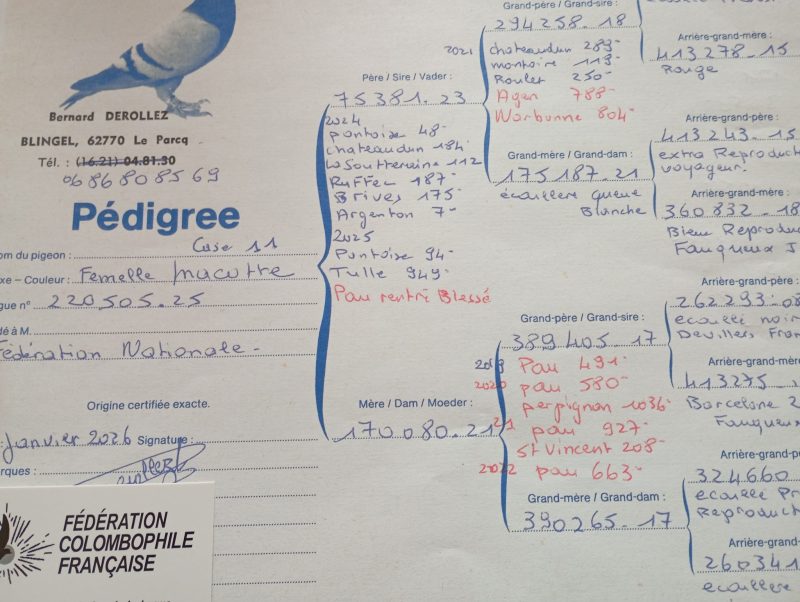 Bernard DEROLLEZ
BLINGEL, 62770 Le Parcq
Tél. : (16.21) 04.81.30
06 86 80 85 69
Pédigree
Case 11
om du pigeon :
xe - Couleur : Femelle macotte
gue n° 220505.25
dé à M.
Fédération Nationale -
Origine certifiée exacte.
Janvier 2026 Signature :
arques :
FÉDÉRATION
COLOMBOPHILE
FRANÇAISE
Père / Sire / Vader :
75381.23
2024
pontoise 48-
chateaudun 184-
La Souterraine 112
Ruffec 187-
Brives 175-
Argenton 7-
2025
Pontoise 94-
Tulle 949-
Pau rentré Blessé
Mère / Dam / Moeder :
170080.21
Grand-père / Grand-sire :
294258.18
2021 chateaudun 289-
montoire 119-
Roulet 250-
Agen 788-
Narbonne 804-
Grand-mère / Grand-dam :
175187.21
écaillere queue
Blanche
Grand-père / Grand-sire :
389405.17
Pau 491-
2020 pau 580-
perpignan 1036-
21 pau 927-
St Vincent 208-
2022 pau 663-
Grand-mère / Grand-dam :
390265-17
Arrière-grand-mère :
413278-15
Rouge
Arrière-grand-père :
413243.15
extra Reproduct
voyageur.
Arrière-grand-mère :
360832-18
Bien Reprodu
Fauqueux J
Arrière-grand-père :
262293-08
écaillé noir
Devillers Fran
Arrière-grand-mère
413275-
Barcelone 2
Fauqueux
Arrière-grand-pè
324660
écaille Pr
Reproduct
Arrière-grand-
260341
écaillere